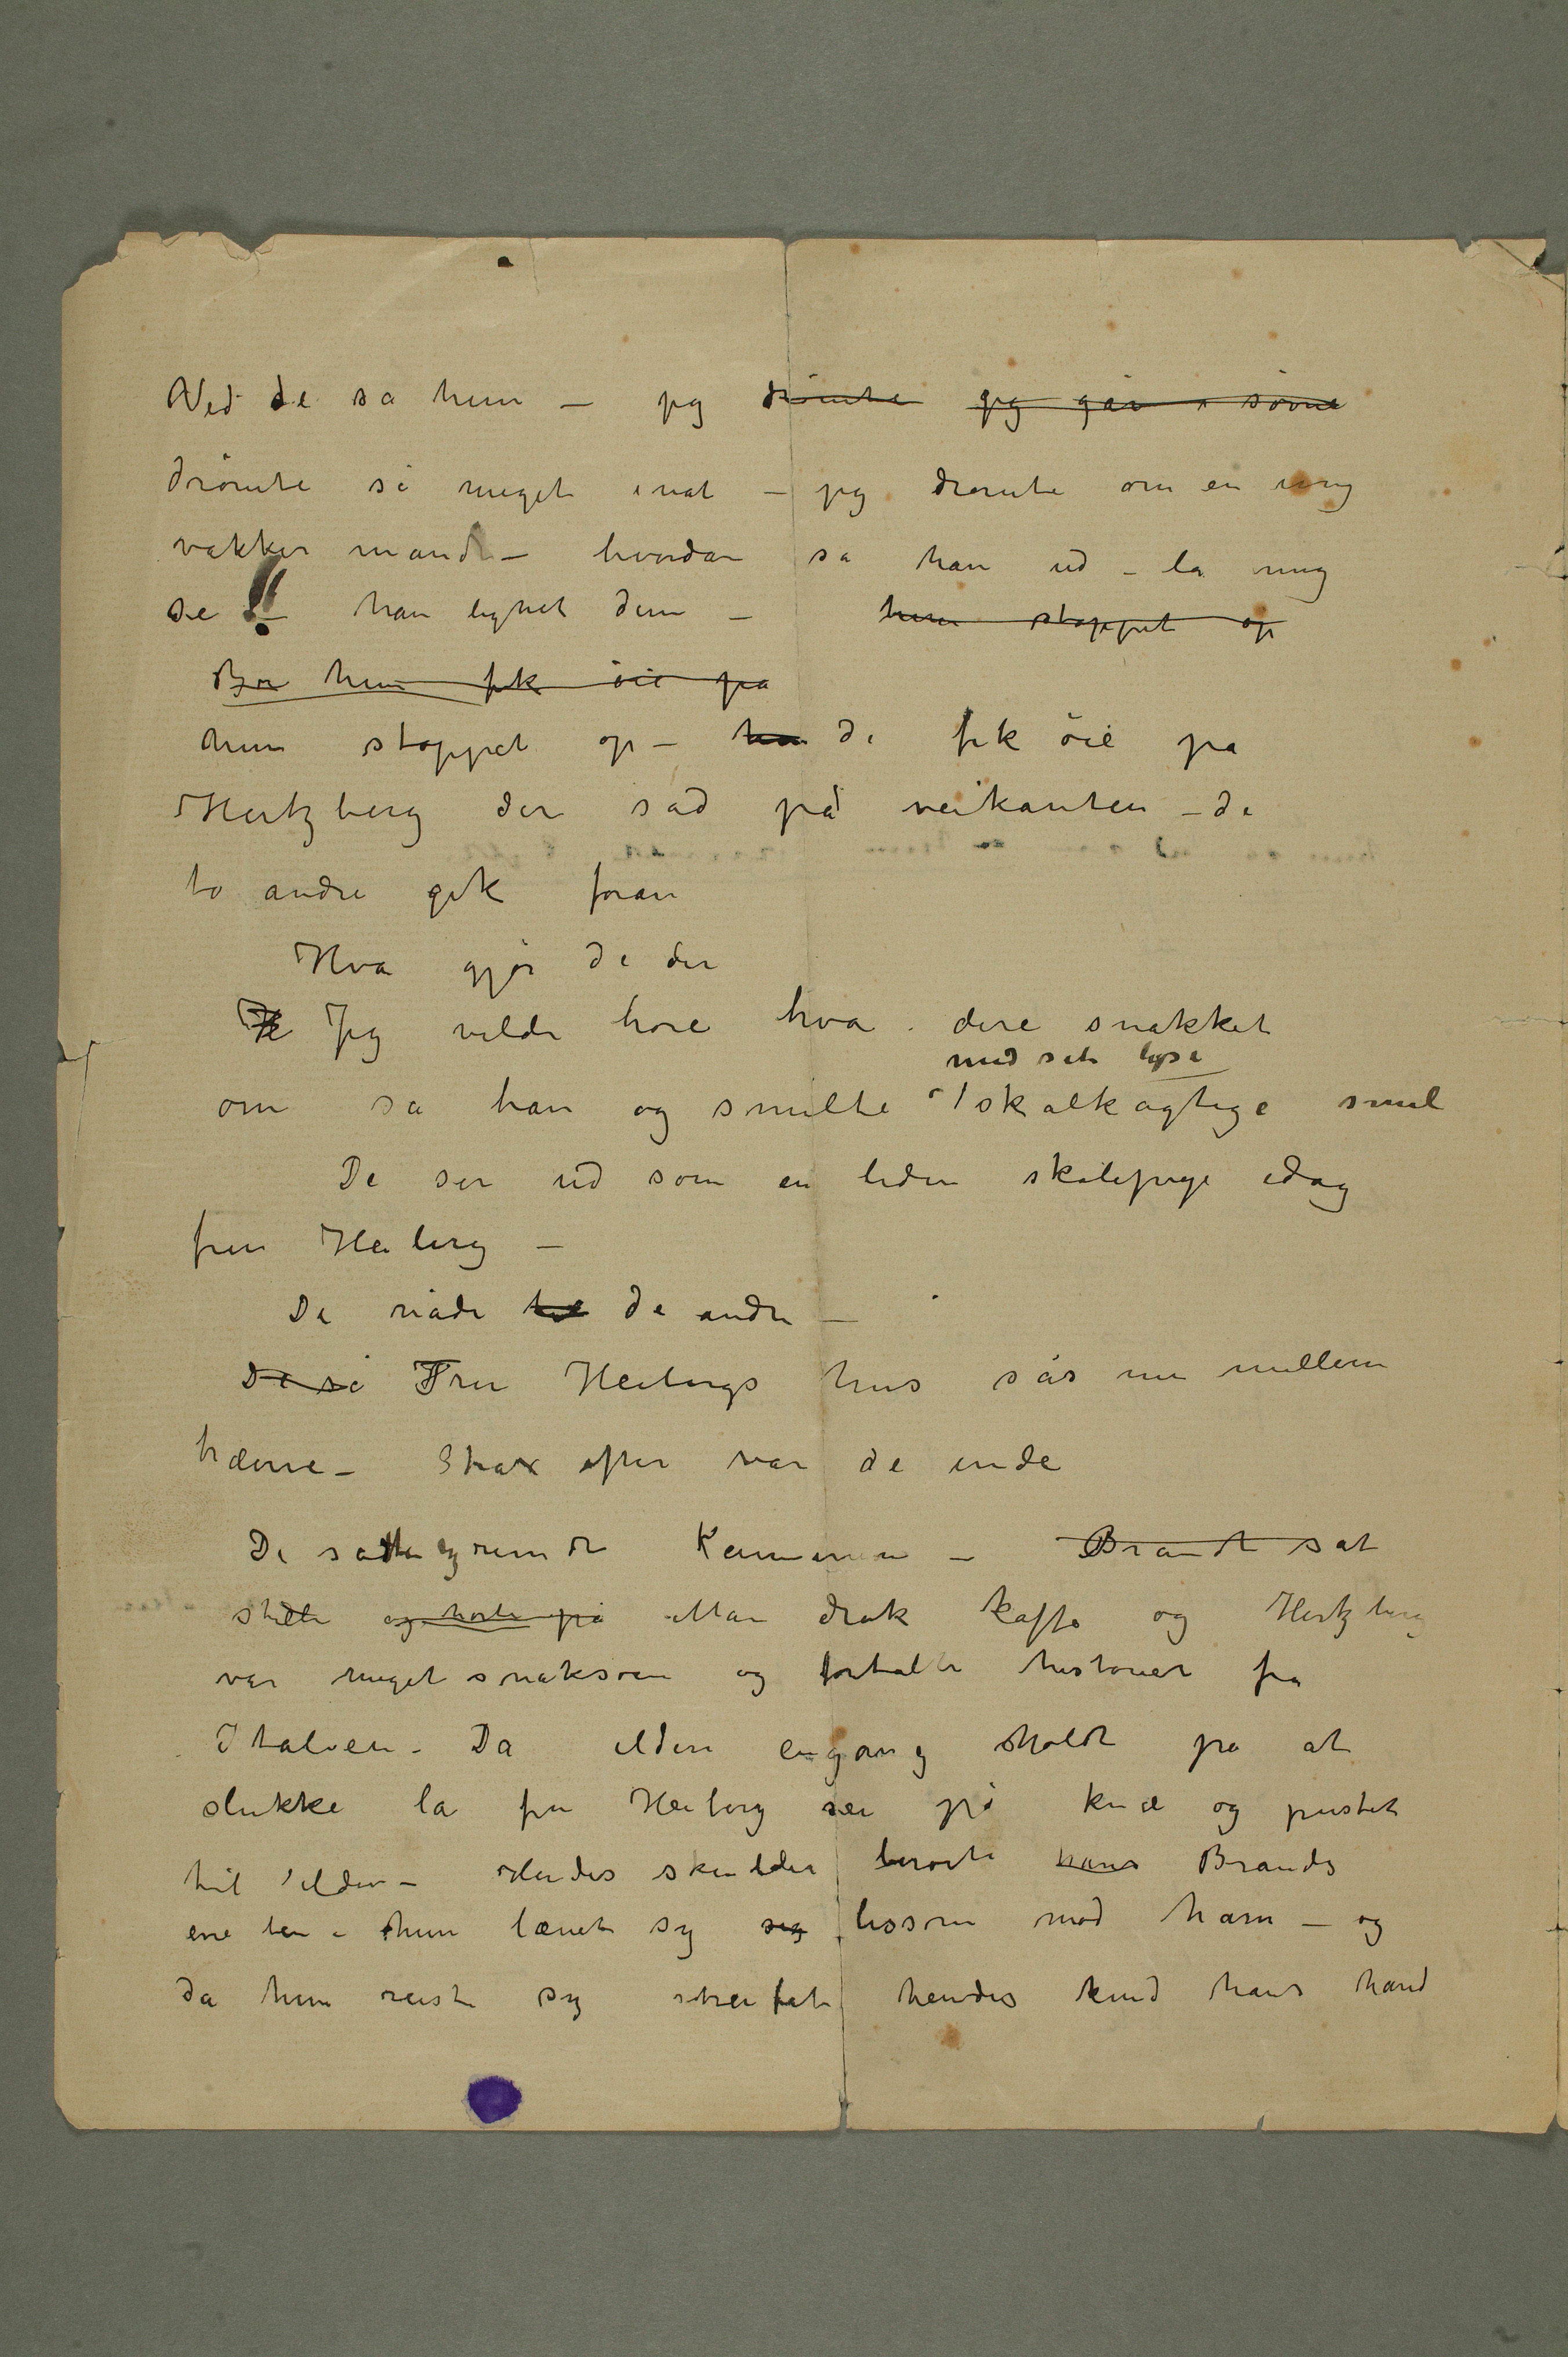 Ved de sa hun – jeg drømte jeg går i søvne
drømte så meget inat – jeg drømte om en ung
vakker mand – hvordan sa han ud – la mig
se !! – han lignet dem – hun stoppet op
Br hun fik øie på
hun stoppet op – hu de fik øie på
Hertzberg der sad på veikanten – de
to andre gik foran
Hva gjør de der
H Jeg vilde høre hva dere snakket
med sit lyse
om sa han og smilte skalkagtige smil
De ser ud som en liden skolepige idag
fru Heiberg –
De nåde til de andre –
De så Fru Heibergs hus sås nu mellem
trærne – Strax efter var de inde
De satte sig rundt Kaminen – Brandt sat
stille og hørte på Man drak kaffe og Hertzberg
var meget snaksom og fortalte historier fra
Italien – Da ilden engang holdt på at
slukke la fru Heiberg sei på knæ og pustet
til ilden – Hendes skulder berørte hans Brandts
ene ben – hun lænet sig sig lissom mod ham – og
da hun reiste sig streifet hendes kind hans hånd